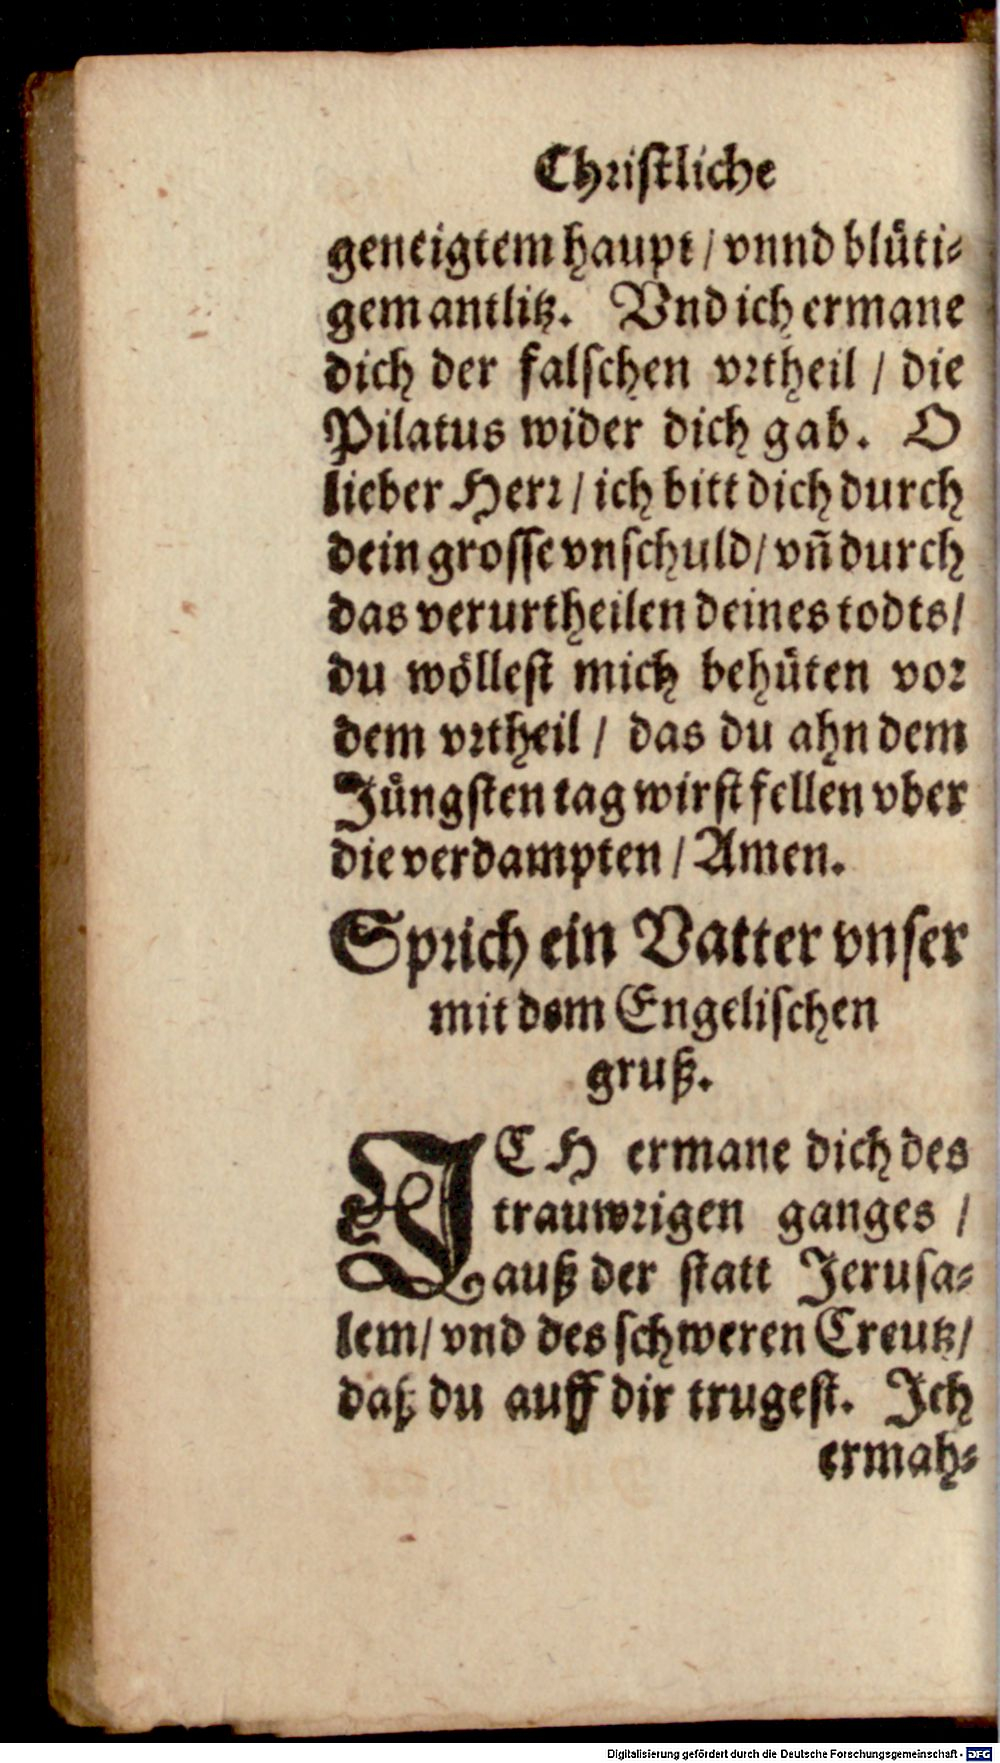 Christliche
geneigtem haupt / vnnd blůti-
gem antlitz. Vnd ich ermane
dich der falschen vrtheil / die
Pilatus wider dich gab. O
lieber Herr / ich bitt dich durch
dein grosse vnschuld / vn̄ durch
das verurtheilen deines todts /
du wöllest mich behůten vor
dem vrtheil / das du ahn dem
Jůngsten tag wirst fellen vber
die verdampten / Amen.
Sprich ein Vatter vnser
mit dem Engelischen
gruß.
ICH ermane dich des
trauwrigen ganges /
auß der statt Jerusa-
lem / vnd des schweren Creutz /
daß du auff dir trugest. Ich
ermah-
Digitalisierung gefördert durch die Deutsche Forschungsgemeinschaft - DFG